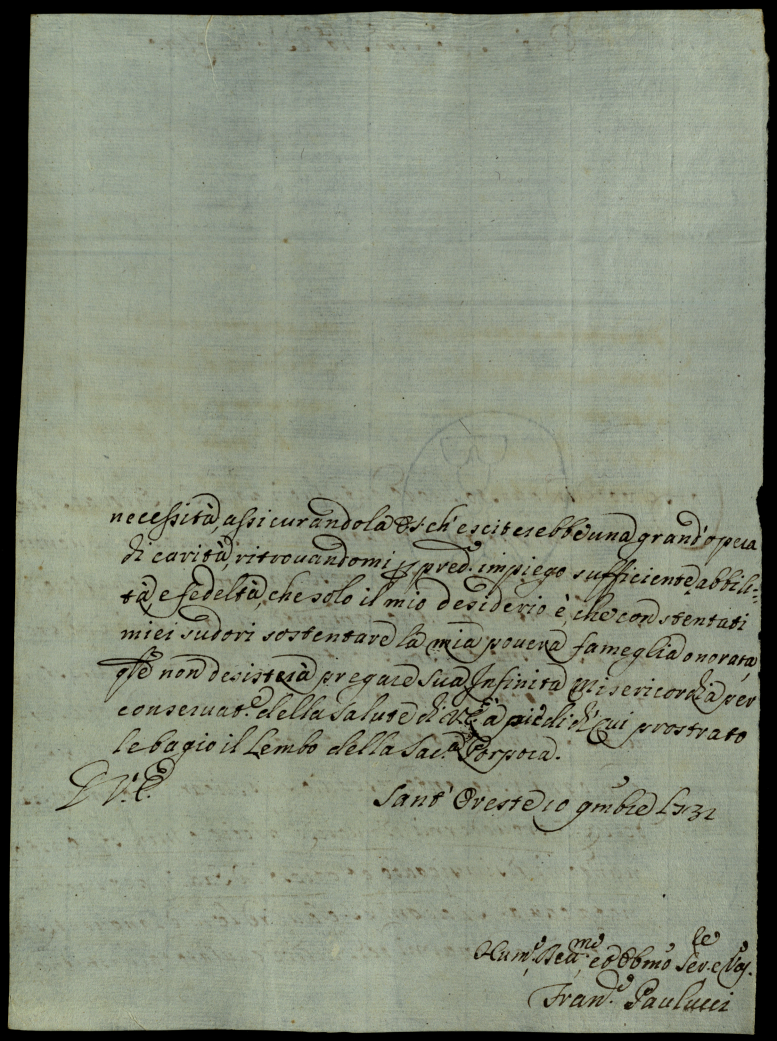 necessità, assicurandola ch'esciterebbe una grand'opera
di carità, ritrovandomi p pred.º impiego sufficiente abbili=
tà, e fedeltà, che solo il mio desiderio è, che con stentati
miei sudori sostentare la mia povera fameglia onorata,
qle non desisterà pregare Sua Infinita Misericordia per
conservat.e della salute di V.E. à piedi di cui prostrato
le bagio il Lembo della Sac.a Porpora.
D V.E.
Sant'Oreste 10 gmbre 1732
Hum.o ed Obmo Ser.e
Fran.o Paulucci